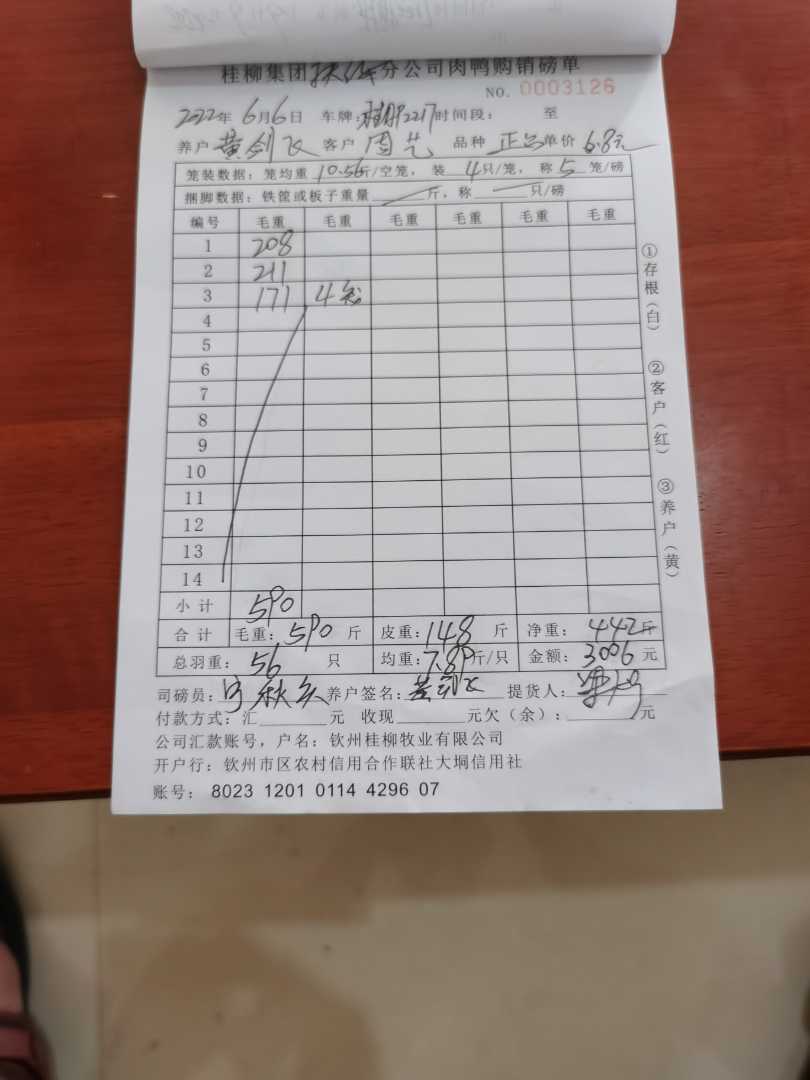 桂柳集团扶绥分公司肉鸭购销磅单
NO. 0003126
2022年6月6日 车牌: 2217 时间段: 至
养户 黄剑飞 客户 周艺 品种 正品 单价 6.8元
笼装数据: 笼均重 10.56斤/空笼, 装 4只/笼, 称 5 笼/磅
捆脚数据: 铁筐或板子重量 斤, 称 只/磅
编号 毛重 毛重 毛重 毛重 毛重 毛重
1 208
2 211
3 171 4笼
4
5
6
7
8
9
10
11
12
13
14
小计 590
合计 毛重: 590 斤 皮重: 148 斤 净重: 442斤
总羽重: 56 只 均重: 7.89斤/只 金额: 3006元
司磅员: 养户签名: 黄剑飞 提货人:
付款方式: 汇 元 收现 元欠(余): 元
公司汇款账号, 户名: 钦州桂柳牧业有限公司
开户行: 钦州市区农村信用合作联社大垌信用社
账号: 8023 1201 0114 4296 07
①存根(白)
②客户(红)
③养户(黄)